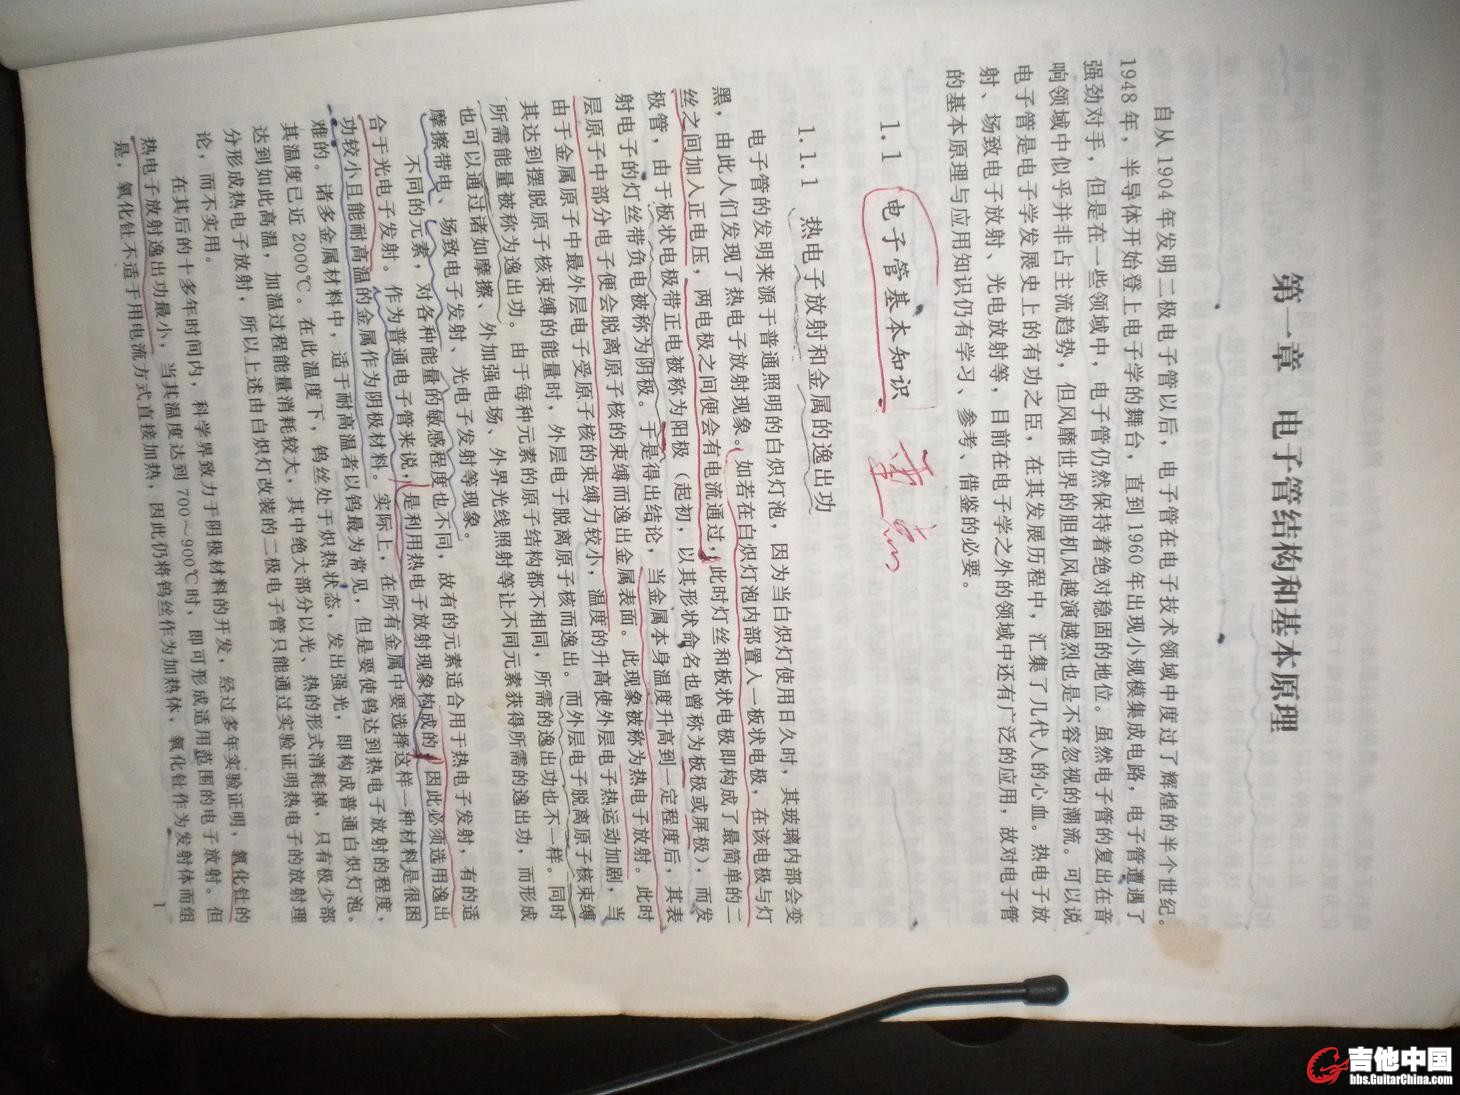 第一章 电子管结构和基本原理
自从1904年发明二极电子管以后，电子管在电子技术领域中度过了辉煌的半个世纪。
1948年，半导体开始登上电子学的舞台，直到1960年出现小规模集成电路，电子管遭遇了
强劲对手，但是在一些领域中，电子管仍然保持着绝对稳固的地位。虽然电子管的复出在音
响领域中似乎并非占主流趋势，但风靡世界的胆机风越演越烈也是不容忽视的潮流。可以说
电子管是电子学发展史上的有功之臣，在其发展历程中，汇集了几代人的心血。热电子放
射、场致电子放射、光电放射等，目前在电子学之外的领域中还有广泛的应用，故对电子管
的基本原理与应用知识仍有学习、参考、借鉴的必要。
1.1 电子管基本知识
1.1.1 热电子放射和金属的逸出功
电子管的发明来源于普通照明的白炽灯泡，因为当白炽灯使用日久时，其玻璃内部会变
黑，由此人们发现了热电子放射现象。如若在白炽灯泡内部置入一板状电极，在该电极与灯
丝之间加入正电压，两电极之间便会有电流通过，此时灯丝和板状电极即构成了最简单的二
极管，由于板状电极带正电被称为阳极（起初，以其形状命名也曾称为板极或屏极），而发
射电子的灯丝带负电被称为阴极。于是得出结论，当金属本身温度升高到一定程度后，其表
层原子中部分电子便会脱离原子核的束缚而逸出金属表面。此现象被称为热电子放射。此时
由于金属原子中最外层电子受原子核的束缚力较小，温度的升高使外层电子热运动加剧，当
其达到摆脱原子核束缚的能量时，外层电子脱离原子核而逸出。而外层电子脱离原子核束缚
所需能量被称为逸出功。由于每种元素的原子结构都不相同，所需的逸出功也不一样。同时
也可以通过诸如摩擦、外加强电场、外界光线照射等让不同元素获得所需的逸出功，而形成
摩擦带电、场致电子发射、光电子发射等现象。
不同的元素，对各种能量的敏感程度也不同，故有的元素适合用于热电子发射，有的适
合于光电子发射。作为普通电子管来说，是利用热电子放射现象构成的，因此必须选用逸出
功较小且能耐高温的金属作为阴极材料。实际上，在所有金属中要选择这样一种材料是很困
难的。诸多金属材料中，适于耐高温者以钨最为常见，但是要使钨达到热电子放射的程度，
其温度已近2000℃。在此温度下，钨丝处于炽热状态，发出强光，即构成普通白炽灯泡。
达到如此高温，加温过程能量消耗较大，其中绝大部分以光、热的形式消耗掉，只有极少部
分形成热电子放射，所以上述由白炽灯改装的二极电子管只能通过实验证明热电子的放射理
论，而不实用。
在其后的十多年时间内，科学界致力于阴极材料的开发，经过多年实验证明，氧化钍的
热电子放射逸出功最小，当其温度达到700～900℃时，即可形成适用范围的电子放射。但
是，氧化钍不适于用电流方式直接加热，因此仍将钨丝作为加热体，氧化钍作为发射体而组
1
吉他中国
bbs.GuitarChina.com